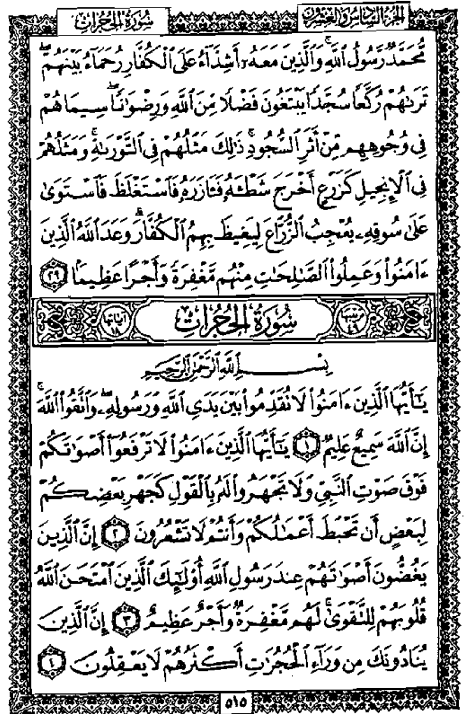 الجزء السادس والعشرون
سورة الحجرات
مُّحَمَّدٌ رَّسُولُ ٱللَّهِ وَٱلَّذِينَ مَعَهُۥٓ أَشِدَّآءُ عَلَى ٱلْكُفَّارِ رُحَمَآءُ بَيْنَهُمْ ۖ
تَرَىٰهُمْ رُكَّعًا سُجَّدًا يَبْتَغُونَ فَضْلًا مِّنَ ٱللَّهِ وَرِضْوَٰنًا ۖ سِيمَاهُمْ
فِى وُجُوهِهِم مِّنْ أَثَرِ ٱلسُّجُودِ ۚ ذَٰلِكَ مَثَلُهُمْ فِى ٱلتَّوْرَىٰةِ ۚ وَمَثَلُهُمْ
فِى ٱلْإِنجِيلِ كَزَرْعٍ أَخْرَجَ شَطْـَٔهُۥ فَـَٔازَرَهُۥ فَٱسْتَغْلَظَ فَٱسْتَوَىٰ
عَلَىٰ سُوقِهِۦ يُعْجِبُ ٱلزُّرَّاعَ لِيَغِيظَ بِهِمُ ٱلْكُفَّارَ ۗ وَعَدَ ٱللَّهُ ٱلَّذِينَ
ءَامَنُوا۟ وَعَمِلُوا۟ ٱلصَّٰلِحَٰتِ مِنْهُم مَّغْفِرَةً وَأَجْرًا عَظِيمًۢا ٢٩
سُورَةُ الحُجُرَاتِ
بِسْمِ ٱللَّهِ ٱلرَّحْمَٰنِ ٱلرَّحِيمِ
يَٰٓأَيُّهَا ٱلَّذِينَ ءَامَنُوا۟ لَا تُقَدِّمُوا۟ بَيْنَ يَدَىِ ٱللَّهِ وَرَسُولِهِۦ ۖ وَٱتَّقُوا۟ ٱللَّهَ ۚ
إِنَّ ٱللَّهَ سَمِيعٌ عَلِيمٌ ١ يَٰٓأَيُّهَا ٱلَّذِينَ ءَامَنُوا۟ لَا تَرْفَعُوٓا۟ أَصْوَٰتَكُمْ
فَوْقَ صَوْتِ ٱلنَّبِىِّ وَلَا تَجْهَرُوا۟ لَهُۥ بِٱلْقَوْلِ كَجَهْرِ بَعْضِكُمْ
لِبَعْضٍ أَن تَحْبَطَ أَعْمَٰلُكُمْ وَأَنتُمْ لَا تَشْعُرُونَ ٢ إِنَّ ٱلَّذِينَ
يَغُضُّونَ أَصْوَٰتَهُمْ عِندَ رَسُولِ ٱللَّهِ أُو۟لَٰٓئِكَ ٱلَّذِينَ ٱمْتَحَنَ ٱللَّهُ
قُلُوبَهُمْ لِلتَّقْوَىٰ ۚ لَهُم مَّغْفِرَةٌ وَأَجْرٌ عَظِيمٌ ٣ إِنَّ ٱلَّذِينَ
يُنَادُونَكَ مِن وَرَآءِ ٱلْحُجُرَٰتِ أَكْثَرُهُمْ لَا يَعْقِلُونَ ٤
٥١٥